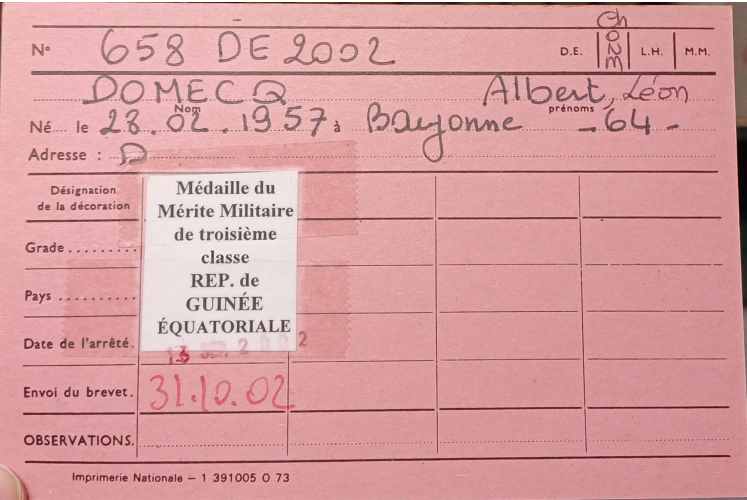 Ch
N° 658 DE 2002 D.E. ONM L.H. M.M.
DOMECQ Albert, Léon
Nom prénoms
Né le 28.02.1957 à Bayonne -64-
Adresse : D
Désignation de la décoration
Médaille du
Mérite Militaire
de troisième
classe
REP. de
GUINÉE
ÉQUATORIALE
Grade
Pays
Date de l'arrêté. 13 2002
Envoi du brevet. 31.10.02
OBSERVATIONS.
Imprimerie Nationale – 1 391005 O 73